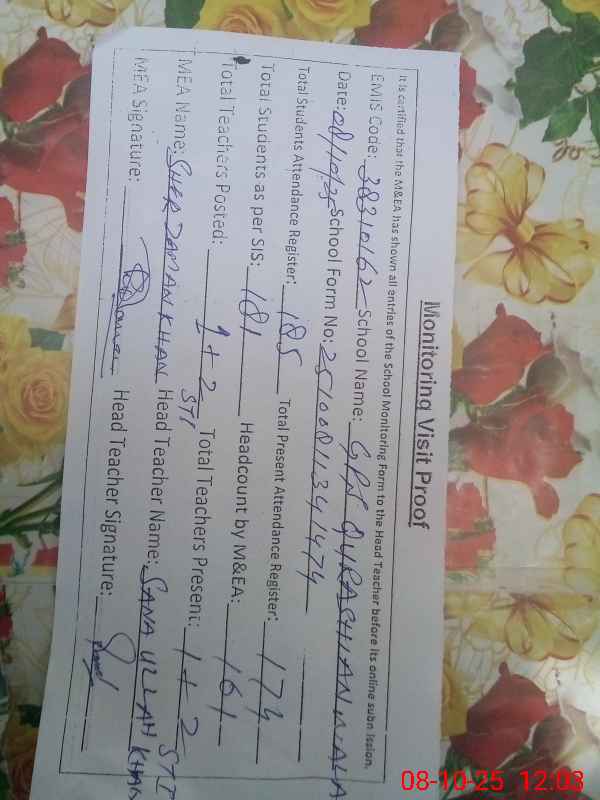 Monitoring Visit Proof
It is certified that the M&EA has shown all entries of the School Monitoring Form to the Head Teacher before its online subn ission.
EMIS Code: 38310162 School Name: GPS QURASHIAN WALA
Date: 08/10/25 School Form No: 2510081341474
Total Students Attendance Register: 185 Total Present Attendance Register: 174
Total Students as per SIS: 181 Headcount by M&EA: 161
Total Teachers Posted: 1+2 STI Total Teachers Present: 1+2 STI
MEA Name: SHER ZAMAN KHAN Head Teacher Name: SANA ULLAH KHAN
MEA Signature: Head Teacher Signature:
08-10-25 12:03